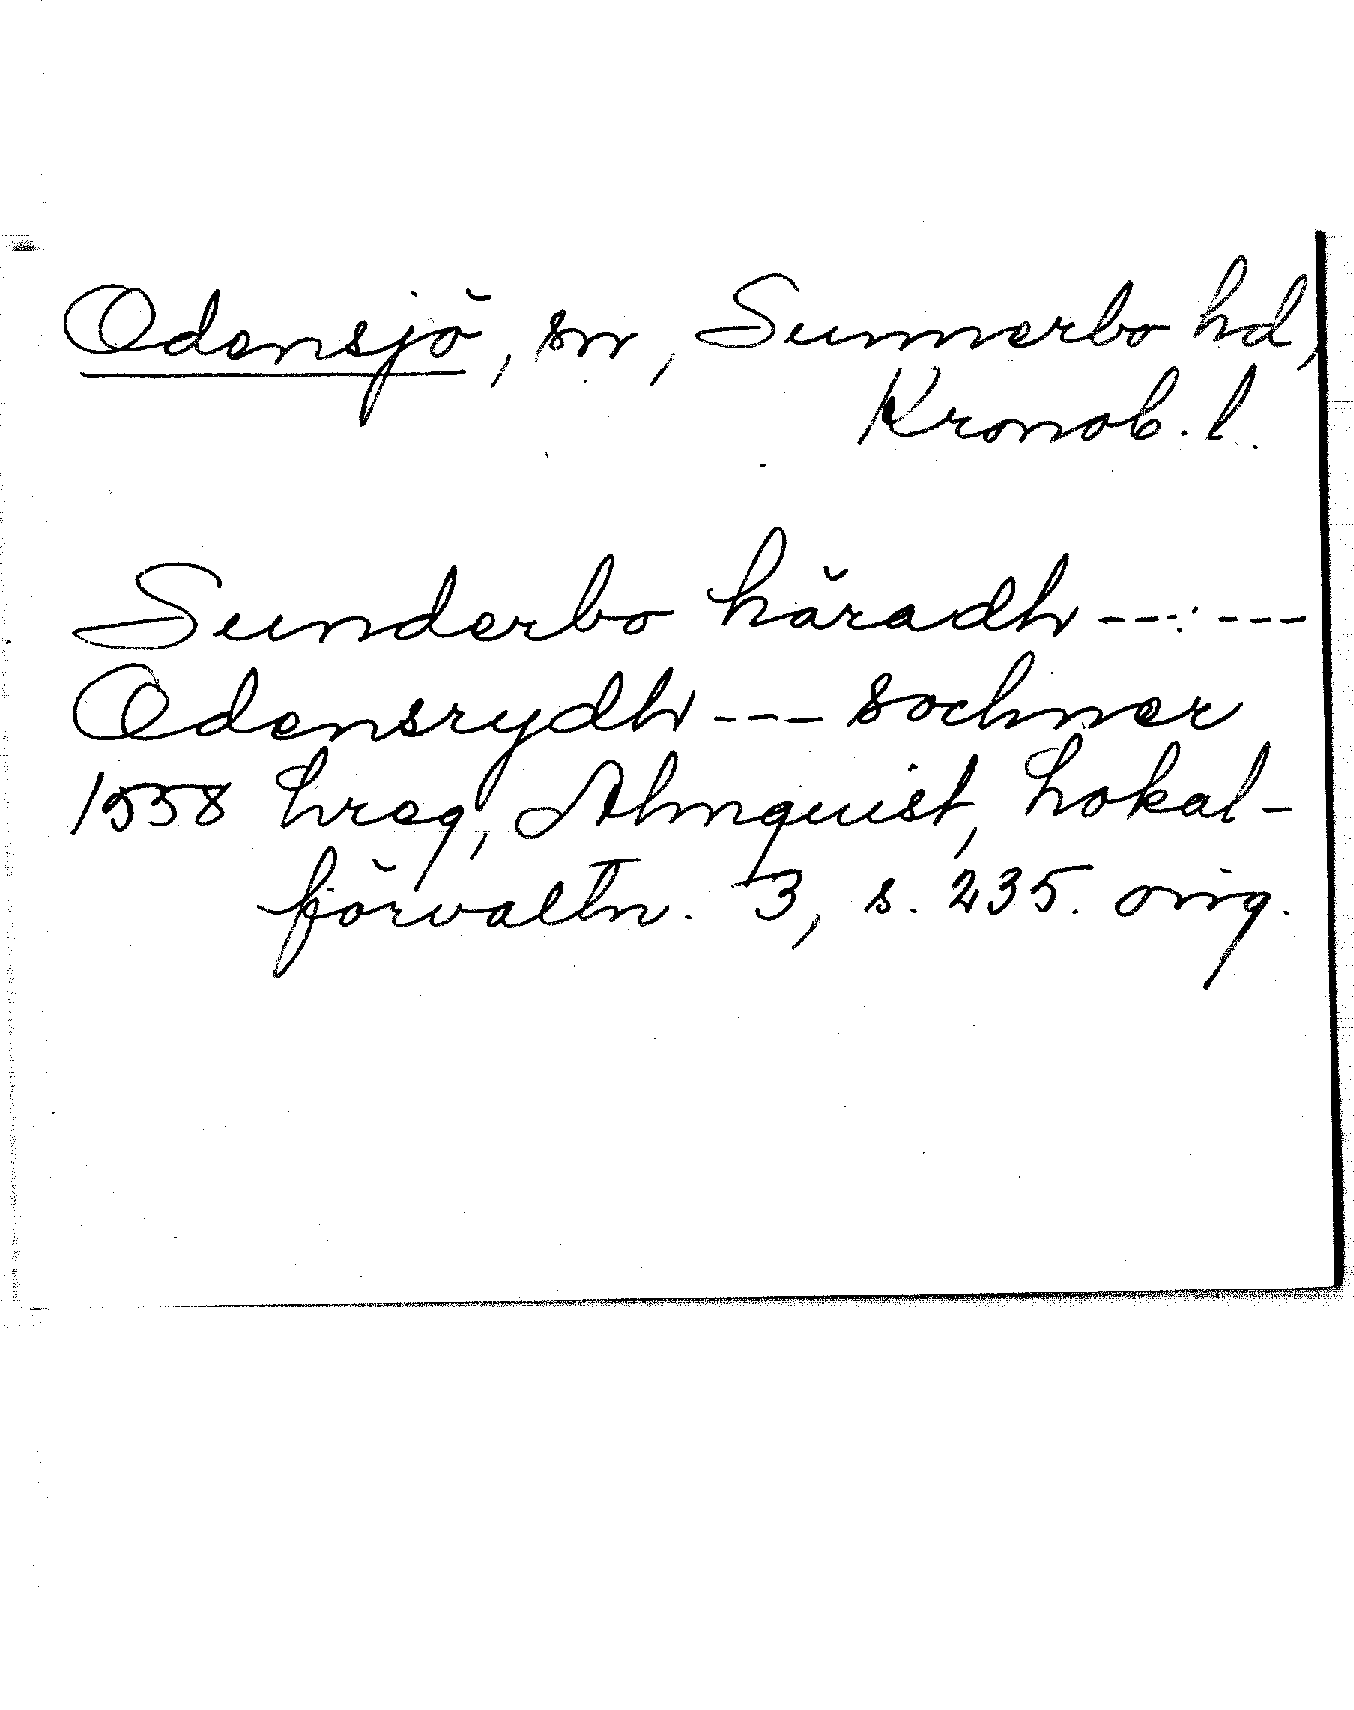 Odensjö, sn, Sunnerbo hd,
Kronob. l.
Sunderbo häradh --- ---
Odensrydh --- sochner
1558 hreg, Almquist, Lokal-
förvaltn. 3, s. 235. orig.